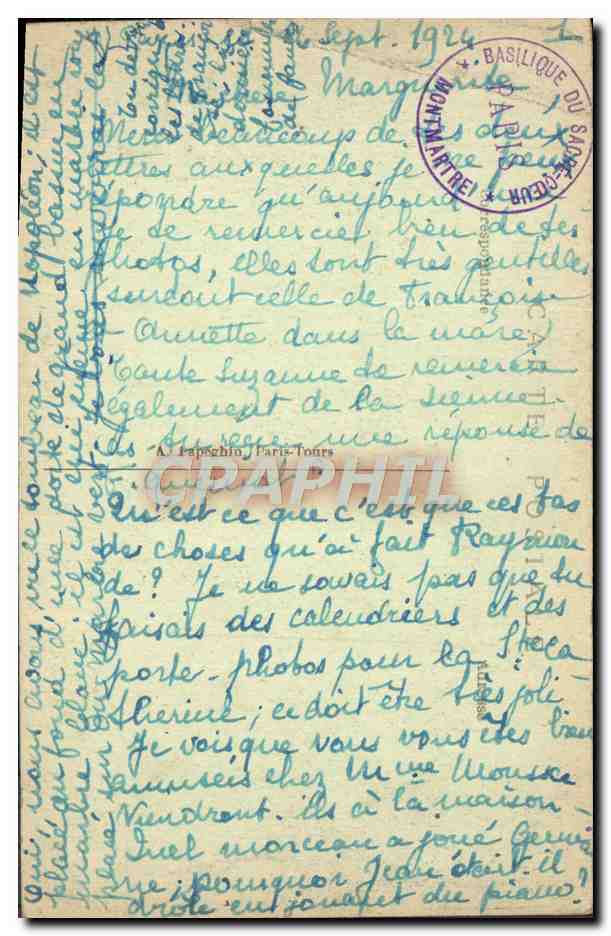 Sept. 1924
1
Marguerite,
Merci beaucoup de tes deux
lettres auxquelles je ne peux
répondre qu'aujourd'hui
Je te remercie bien de tes
photos, elles sont très gentilles
surtout celle de François
Annette dans la mare.
Tante Suzanne te remercie
également de la sienne.
As tu reçu une réponse de
Qu'est ce que c'est que ces tas
de choses qu'a fait Raymon
de ? Je ne savais pas que tu
faisais des calendriers et des
porte-photos pour la Ste Ca
therine ; ce doit être très joli
Je vois que vous vous êtes bien
amusés chez Mme
Viendront-ils à la maison
Quel morceau a joué
pourquoi Jean était-il
drôle en jouant du piano ?
Oui nous avons vu ce tombeau de Napoléon, il est
placé au fond d'une sorte de grand bassin en
marbre blanc, il est lui même en marbre rou
placé sur un marbre vert.
BASILIQUE DU SACRÉ-CŒUR
PARIS
(MONTMARTRE)
CARTE POSTALE
Correspondance
Adresse
A. Papeghin, Paris-Tours
CPAPHIL